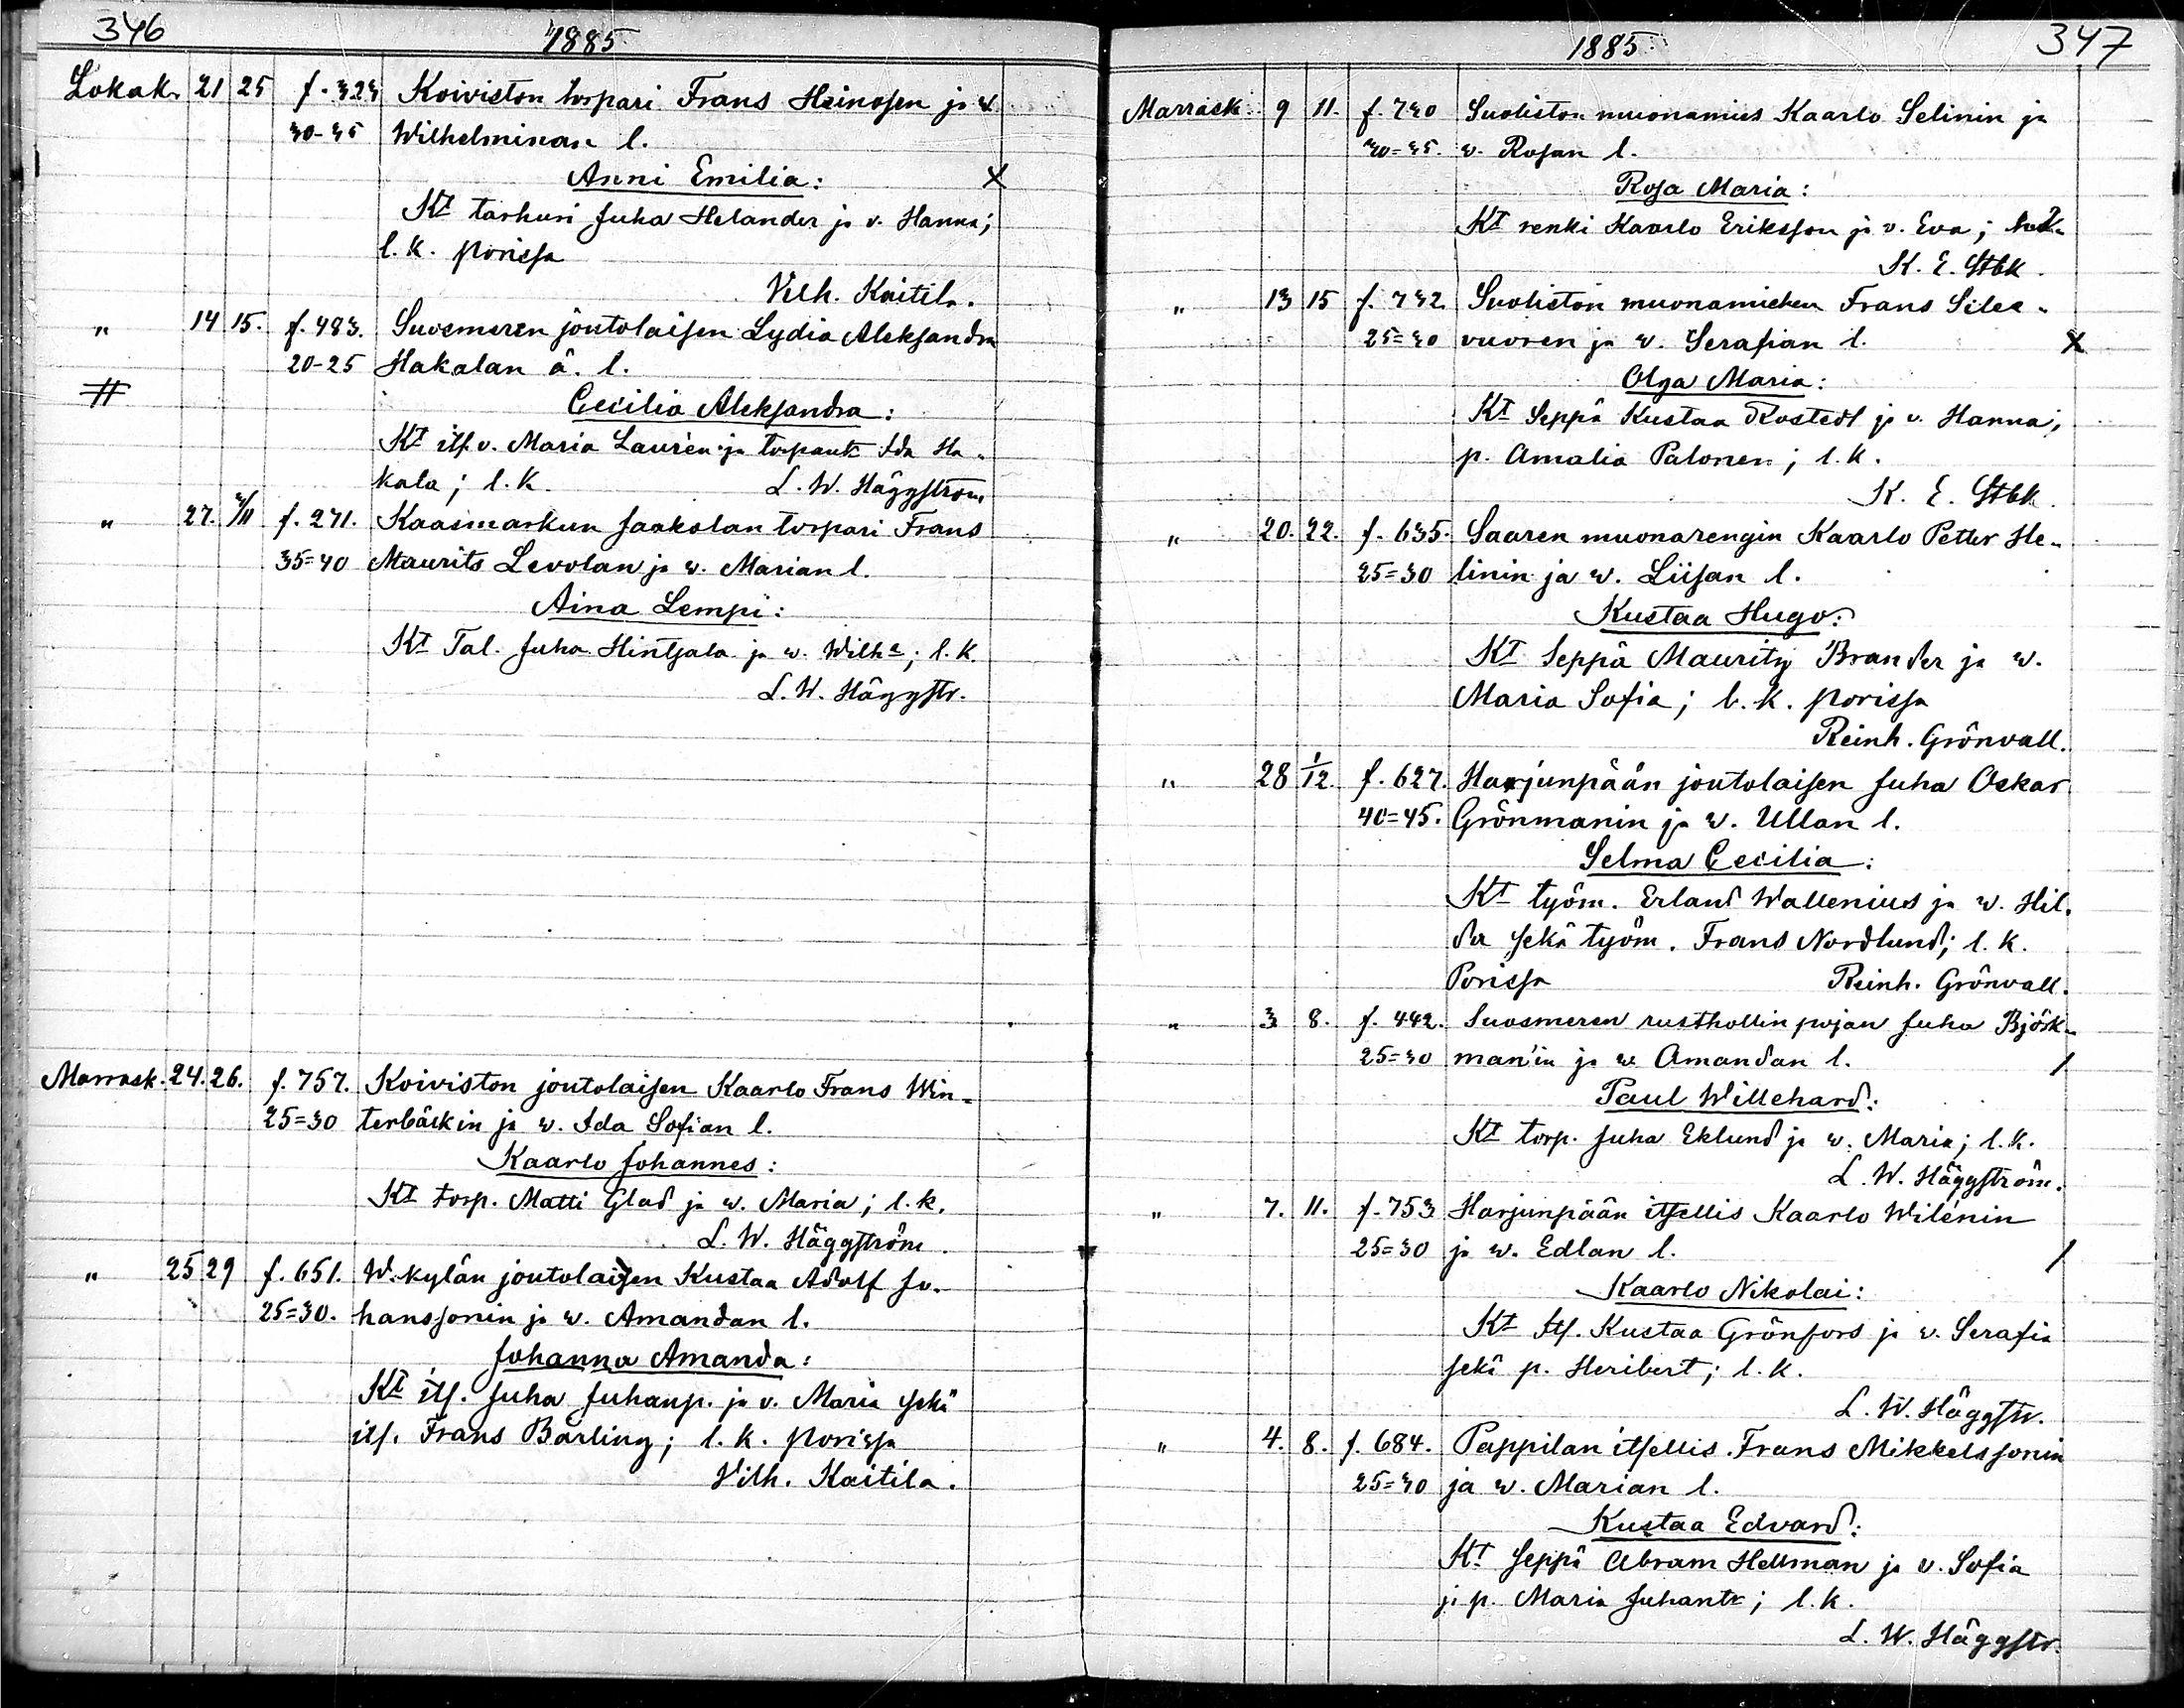 346
1885.
Lokak. 21 25 f. 323 Koiviston torpari Frans Heinosen ja w.
30-35 Wilhelminan l.
Anni Emilia: X
Kt tarhuri Juha Helander ja v. Hanna;
l. k. porissa
Vilh. Kaitila.
" 14 15. f. 483. Suosmeren joutolaisen Lydia Aleksandra
20-25 Hakalan ä. l.
#
Cecilia Aleksandra:
Kt its. v. Maria Laurén ja torpant. Ida Ha-
kala; l. k. L. W. Häggström
" 27. 1/11 f. 271. Kaasmarkun Jaakolan torpari Frans
35=40 Maurits Levolan ja w. Marian l.
Aina Lempi:
Kt Tal. Juha Hintsala ja w. Wilha; l. k.
L. W. Häggstr.
Marrask. 24. 26. f. 757. Koiviston joutolaisen Kaarlo Frans Win-
25=30 terbäckin ja w. Ida Sofian l.
Kaarlo Johannes:
Kt torp. Matti Glad ja w. Maria; l. k.
L. W. Häggström.
" 25 29 f. 651. W.kylän joutolaisen Kustaa Adolf Jo-
25=30. hanssonin ja w. Amandan l.
Johanna Amanda:
Kt its. Juha Juhanp. ja v. Maria sekä
its. Frans Bärling; l. k. porissa
Vilh. Kaitila.
347
1885.
Marrask. 9 11. f. 730 Suoliston muonamies Kaarlo Selinin ja
30=35. w. Rosan l.
Rosa Maria:
Kt renki Kaarlo Eriksson ja v. Eva;
K. E. Stbk.
" 13 15 f. 732. Suoliston muonamiehen Frans Silea-
25=30 vuoren ja w. Serafian l. X
Olga Maria:
Kt Seppä Kustaa Rostedt ja v. Hanna;
p. Amalia Palonen; l. k.
K. E. Stbk.
" 20. 22. f. 635. Saaren muonarengin Kaarlo Petter He-
25=30 linin ja w. Liisan l.
Kustaa Hugo:
Kt Seppä Maurits Brander ja w.
Maria Sofia; l. k. porissa
Reinh. Grönvall.
" 28 1/12. f. 627. Harjunpään joutolaisen Juha Oskar
40=45. Grönmanin ja w. Ullan l.
Selma Cecilia:
Kt työm. Erland Wallenius ja w. Hil-
da sekä työm. Frans Nordlund; l. k.
Porissa Reinh. Grönvall.
" 3 8. f. 442. Suosmeren rusthollin pojan Juha Björk-
25=30 man'in ja w. Amandan l. /
Paul Willehard:
Kt torp. Juha Eklund ja w. Maria; l. k.
L. W. Häggström.
" 7. 11. f. 753 Harjunpään itsellis Kaarlo Wilénin
25=30 ja w. Edlan l. /
Kaarlo Nikolai:
Kt its. Kustaa Grönfors ja v. Serafia
sekä p. Heribert; l. k.
L. W. Häggstr.
" 4. 8. f. 684. Pappilan itsellis. Frans Mikkelssonin
25=30 ja w. Marian l.
Kustaa Edvard:
Kt seppä Abram Hellman ja v. Sofia
ja p. Maria Juhant.; l. k.
L. W. Häggstr.